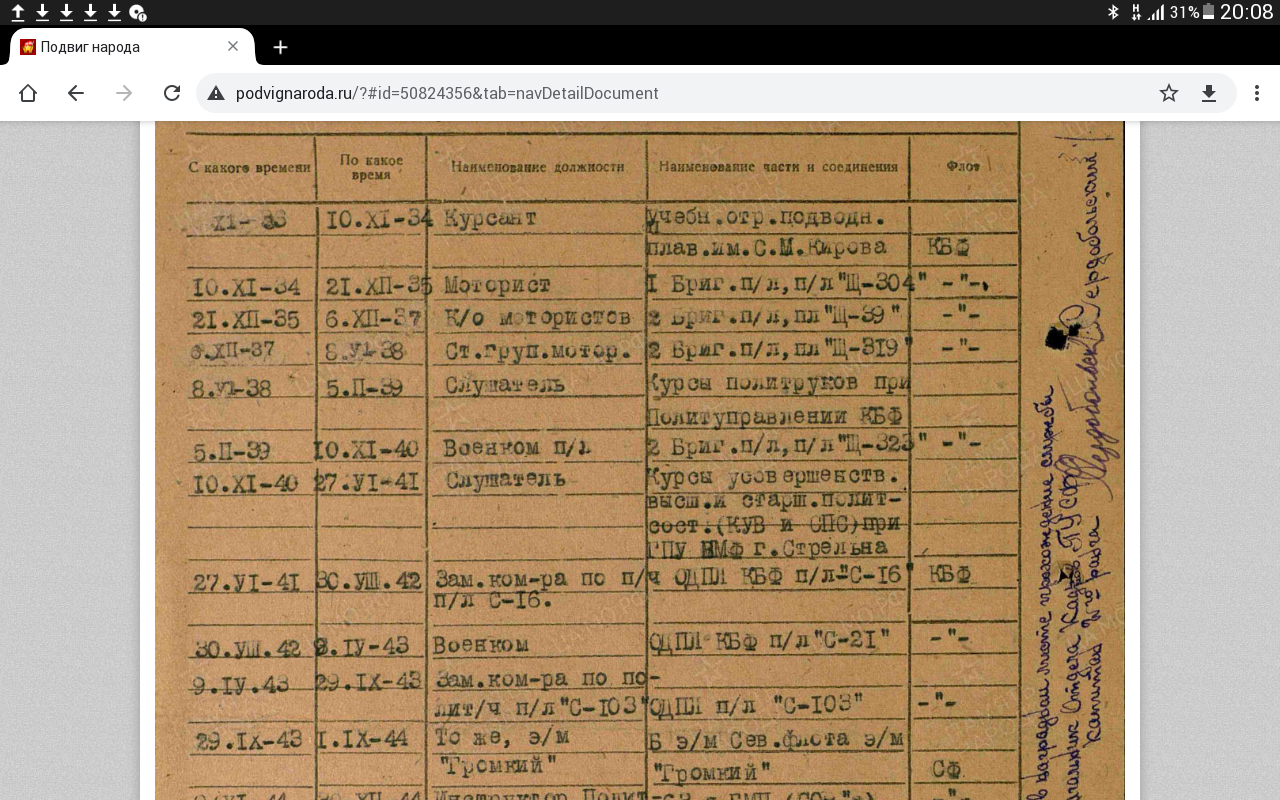 31% 20:08
Подвиг народа
podvignaroda.ru/?#id=50824356&tab=navDetailDocument
С какого времени По какое время Наименование должности Наименование части и соединения Флот
XI-33 10.XI-34 Курсант Учебн.отр.подводн.
плав.им.С.М.Кирова КБФ
10.XI-34 21.XП-35 Моторист I Бриг.п/л,п/л"Щ-304" -"-
21.XП-35 6.XП-37 К/о мотористов 2 Бриг.п/л,пл"Щ-39" -"-
6.XП-37 8.УI-38 Ст.груп.мотор. 2 Бриг.п/л,пл"Щ-319" -"-
8.УI-38 5.П-39 Слушатель Курсы политруков при
Политуправлении КБФ
5.П-39 10.XI-40 Военком п/л 2 Бриг.п/л,п/л"Щ-323" -"-
10.XI-40 27.УI-41 Слушатель Курсы усовершенств.
высш.и старш.полит-
сост.(КУВ и СПС)при
ГПУ ВМФ г.Стрельна
27.УI-41 30.УШ.42 Зам.ком-ра по п/ч ОДПЛ КБФ п/л-"С-16" КБФ
п/л С-16.
30.УШ.42 9.IУ-43 Военком ОДПЛ КБФ п/л"С-21" -"-
9.IУ.43 29.IX-43 Зам.ком-ра по по-
лит/ч п/л"С-103" ОДПЛ п/л "С-103" -"-
29.IX-43 I.IX-44 То же, э/м Б э/м Сев.флота э/м
"Громкий" "Громкий" СФ
Инструктор Полит-
в наградном листе прохождение службы
Отдела Кадров
капитан
Сердобольский